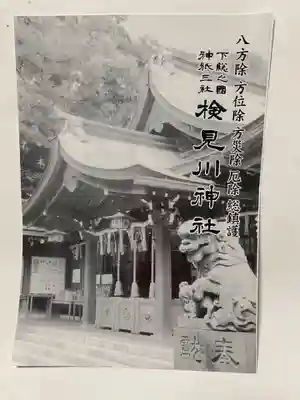 八方除・方位除・方災除・厄除・総鎮護
下総之國
神祇三社
検見川神社
奉